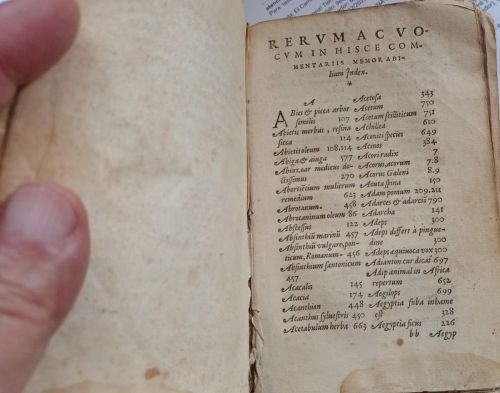 RERVM AC VO-
CVM IN HISCE COM-
MENTARIIS MEMORABI-
lium Index.
*
A
ABies & picea arbor
similis 107
Abietis merbus, resina
sicca 114
Abietis oleum 108,114
Abiga & aiuga 577
doctissimus 270
Abortiētium mulierum
remedium 623
Abrotanum. 458
Abrotaninum oleum 86
Abstessus 122
Absinthiū marinū 457
Absinthiū vulgare, pon-
ticum, Romanum- 456
Absinthium santonicum
457
Acacalis 145
Acacia 174
Acanthian 448
Acanthus syluestris 450
Acetabulum herba 663
Acetosa 343
Acetum 750
Acetum scilliticum 751
Achillea 610
Aconiti species 649
Acinos 384
Acori radix 7
Acorus, acorum 7.8
Acorus Galeni 8.9
Acuta spina 150
Adam pomum 209.211
Adarces & adarciō 790
Adarcha 141
Adeps 300
Adeps differt à pingue-
dine 300
Adeps aquiuoca vox 300
Adianton cur dicaī 697
Adip animal in Africa
repertum 652
Aegilops 699
Aegyptia faba inhame
est 328
Aegyptia ficus 226
bb Aegyp